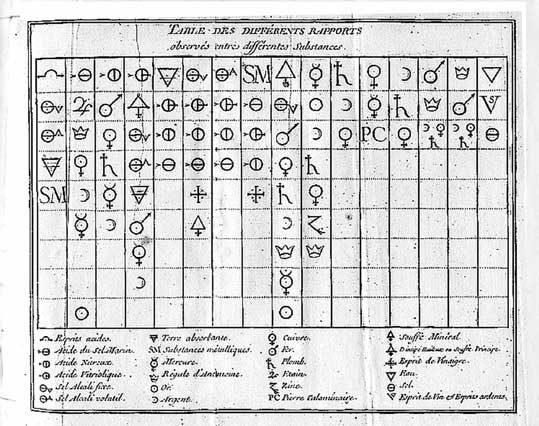 TABLE DES DIFFÉRENTS RAPPORTS
observés entre différentes Substances.
SM
PC
SM
Esprits acides.
Acide du Sel Marin.
Acide Nitreux.
Acide Vitriolique.
Sel Alcali fixe.
Sel Alcali volatil.
Terre absorbante.
SM Substances métalliques.
Mercure.
Régule d'Antimoine.
Or.
Argent.
Cuivre.
Fer.
Plomb.
Etain.
Zinc.
PC Pierre Calaminaire.
Souffre Minéral.
Principe huileux ou Souffre Principe.
Esprit de Vinaigre.
Eau.
Sel.
Esprit de Vin et Esprits ardents.